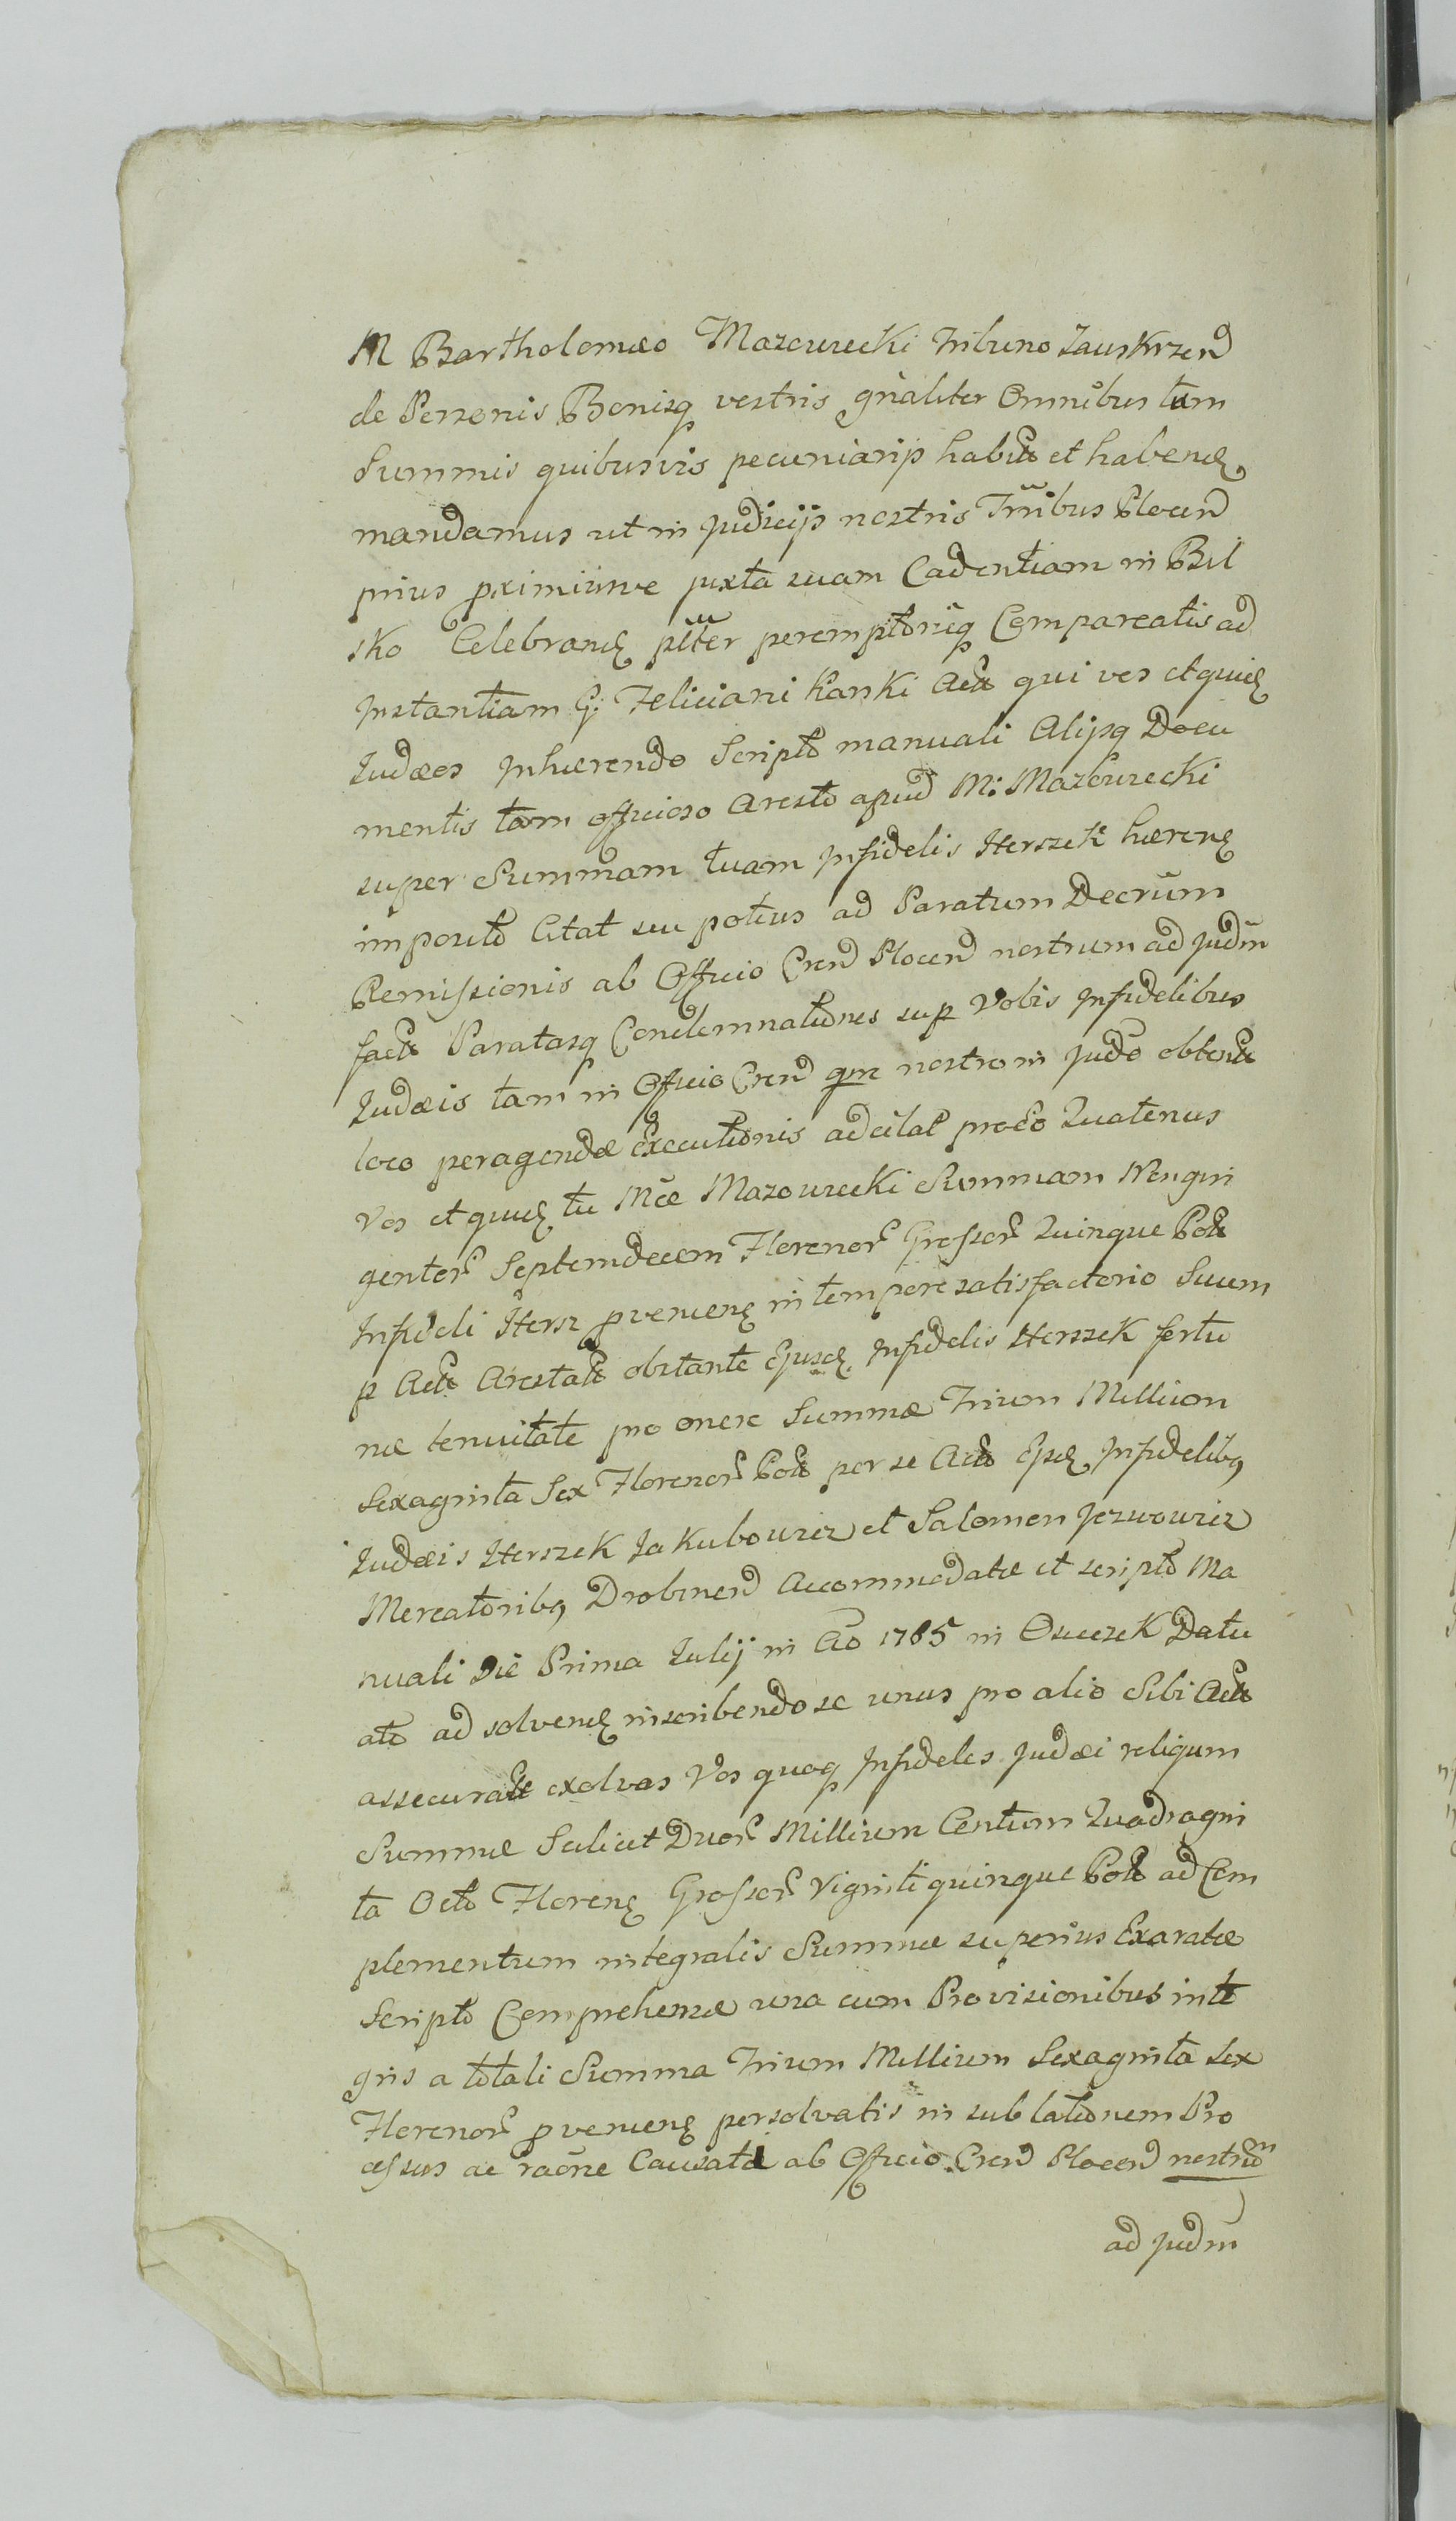 M Bartholomæo Mazowiecki Tribuno Zauskrzen
de Personis Bonisq vestris gnaliter Omnibus tum
Summis quibusvis pecuniarijs habit et habend
mandamus ut in Judicijs nostris Trribus Plocen
prius primiusve juxta suam Cadentiam in Bil
sko Celebrand plter peremptorieq Compareatis ad
Instantiam G. Feliciani Kanki Act qui vos et quid
Judæos Inhærendo Scripto manuali Alijsq Docu
mentis tam officioso Aresto apud M: Mazowiecki
super Summam tuam Infidelis Herszek hæren
imposito Citat seu potius ad Paratum Decrum
Remissionis ab Officio Cren Plocen nostrum ad Judm
fact Paratasq Condemnationes sup Vobis Infidelibus
Judæis tam in Officio Cren qm nostro in Judo obtent
loco peragendæ Executionis adcitat proco Quatenus
Vos et quid tu Mce Mazowiecki Summam Nongin
gentor Septemdecem Florenor Grossor Quinque Pol
Infideli Hersz pvenien in tempore satisfactorio Suum
p Act Arestat obstante Ejusd Infidelis Herszek fortu
næ tenuitate pro onere Summæ Trium Millium
Sexaginta Sex Florenor Pol per se Act Ejsd Infidelibq
Judæis Herszek Jakubowicz et Salomon Jezwowicz
Mercatoribq Drobinen Accommodatæ et scripto Ma
nuali Die Prima Julij in Ao 1785 in Osieczek Datu
ato ad solvend inscribendo se unus pro alio Sibi Act
assecurat exolvas Vos quoq Infideles Judæi reliquum
Summæ Scilicet Duor Millium Centum Quadragin
ta Octo Floren Grossor Viginti quinque Pol ad Com
plementum integralis Summæ superius Exaratæ
Scripto Comprehensæ una cum Provisionibus inte
gris a totali Summa Trium Millium Sexaginta Sex
Florenor pvenien persolvatis in sublationem Pro
cessus ac raone Causatæ ab Officio Cren Plocen nostrum
ad Judm